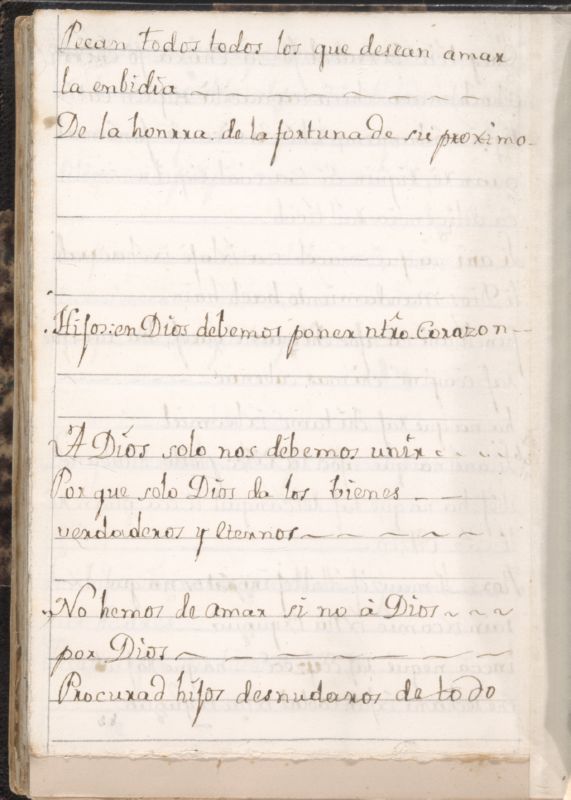 Pecan todos todos los que desean amar
la enbidia
De la honrra. de la fortuna de su proximo
Hifos: en Dios debemos poner ntr̃o. Corazon
A Dios solo nos débemos unir
Por que solo Dios da los bienes
verdaderos y Eternos
No hemos de amar si no â Dios
por Dios
Procurad hifos desnudaros de todo